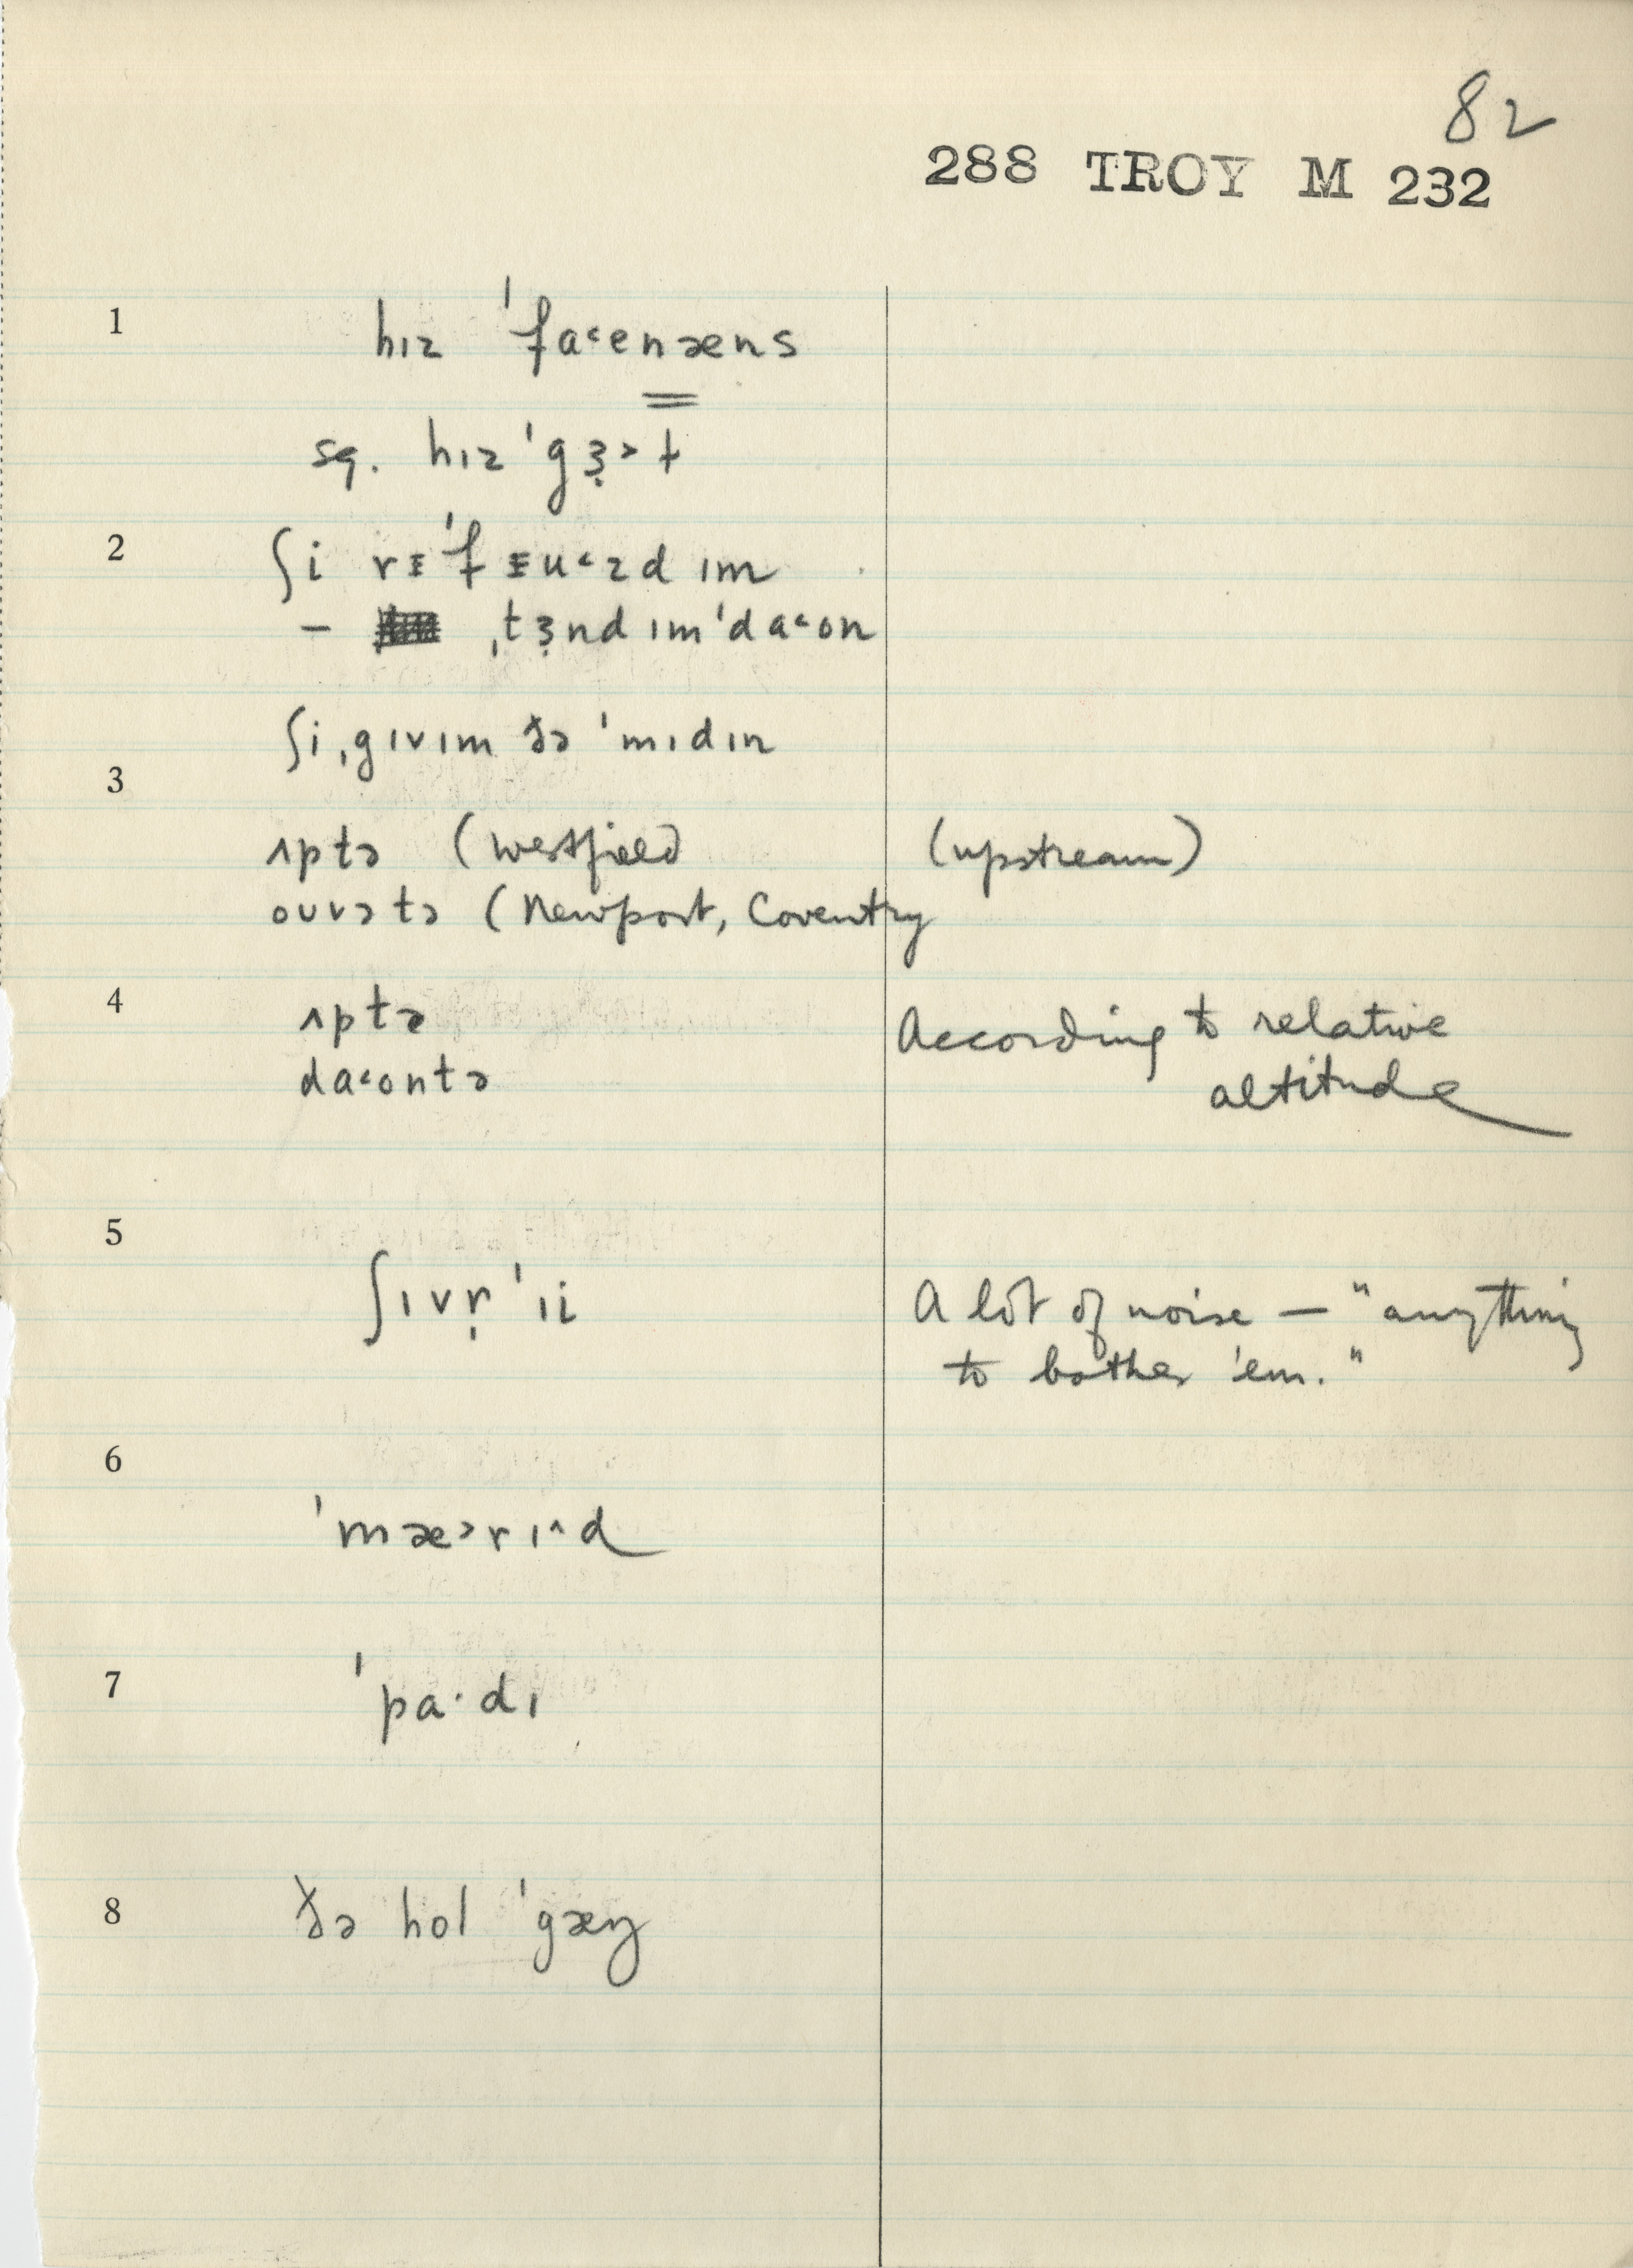 82
288 TROY M 232
1 hɪz ˈfa˂enæns
sq. hɪz ˈgɜ̣˃ɫ
2 ʃi rᵻˈfᵻu˂zd ɪm
– ˌtɜ̣nd ɪm ˈda˂on
ʃi ˌgɪv ɪm ðə ˈmɪdɪn
3
ʌptə (Westfield (upstream)
ouvətə (Newport, Coventry
4 ʌptə According to relative
da˂ontə altitude
5
ʃɪvṛˈɪi A lot of noise — "anything
to bother 'em."
6
ˈmæ˃rɪ^d
7 ˈpa·dɪ
8 ðə hol ˈgæŋ